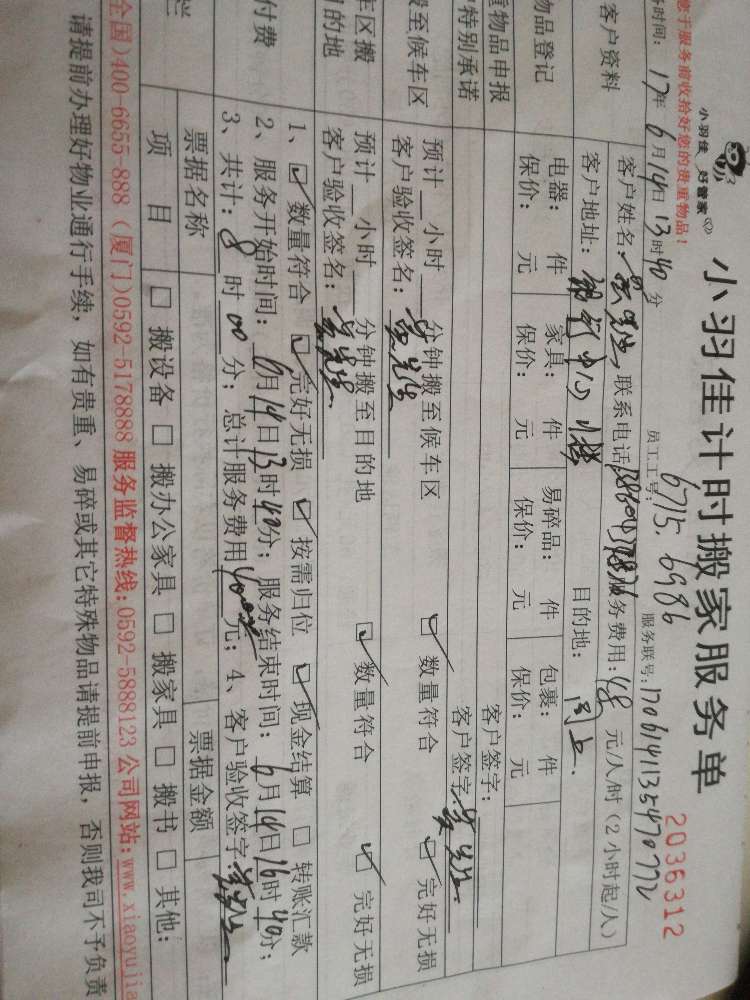 小羽佳 好管家
小羽佳计时搬家服务单
2036312
您于服务前收拾好您的贵重物品!
务时间: 17年 6月 14日 13时 40分
员工工号: 6715. 6986
服务联号:
客户资料
客户姓名: 联系电话: 服务费用: 元/人/时 (2小时起/人)
客户地址: 目的地: 同上.
物品登记
电器: 件 家具: 件 易碎品: 件 包裹: 件
保价: 元 保价: 元 保价: 元 保价: 元
重物品申报
客户签字:
特别承诺
客户签字: 吴先生
搬至候车区
预计 小时 分钟搬至候车区 ☑ 数量符合 ☑ 完好无损
客户验收签名: 吴先生
车区搬
目的地
预计 小时 分钟搬至目的地 ☑ 数量符合 ☑ 完好无损
客户验收签名: 吴先生
付费
1、☑ 数量符合 ☑ 完好无损 ☑ 按需归位 ☑ 现金结算 □ 转账汇款
2、服务开始时间: 6月14日13时40分; 服务结束时间: 6月14日16时40分;
3、共计: 8时00分; 总计服务费用 元; 4、客户验收签字: 吴先生
栏
票据名称 票据金额
项 目 □ 搬设备 □ 搬办公家具 □ 搬家具 □ 搬书 □ 其他:
全国)400-6655-888 (厦门)0592-5178888 服务监督热线:0592-5888123 公司网站:www.xiaoyujia
请提前办理好物业通行手续, 如有贵重、易碎或其它特殊物品请提前申报, 否则我司不予负责